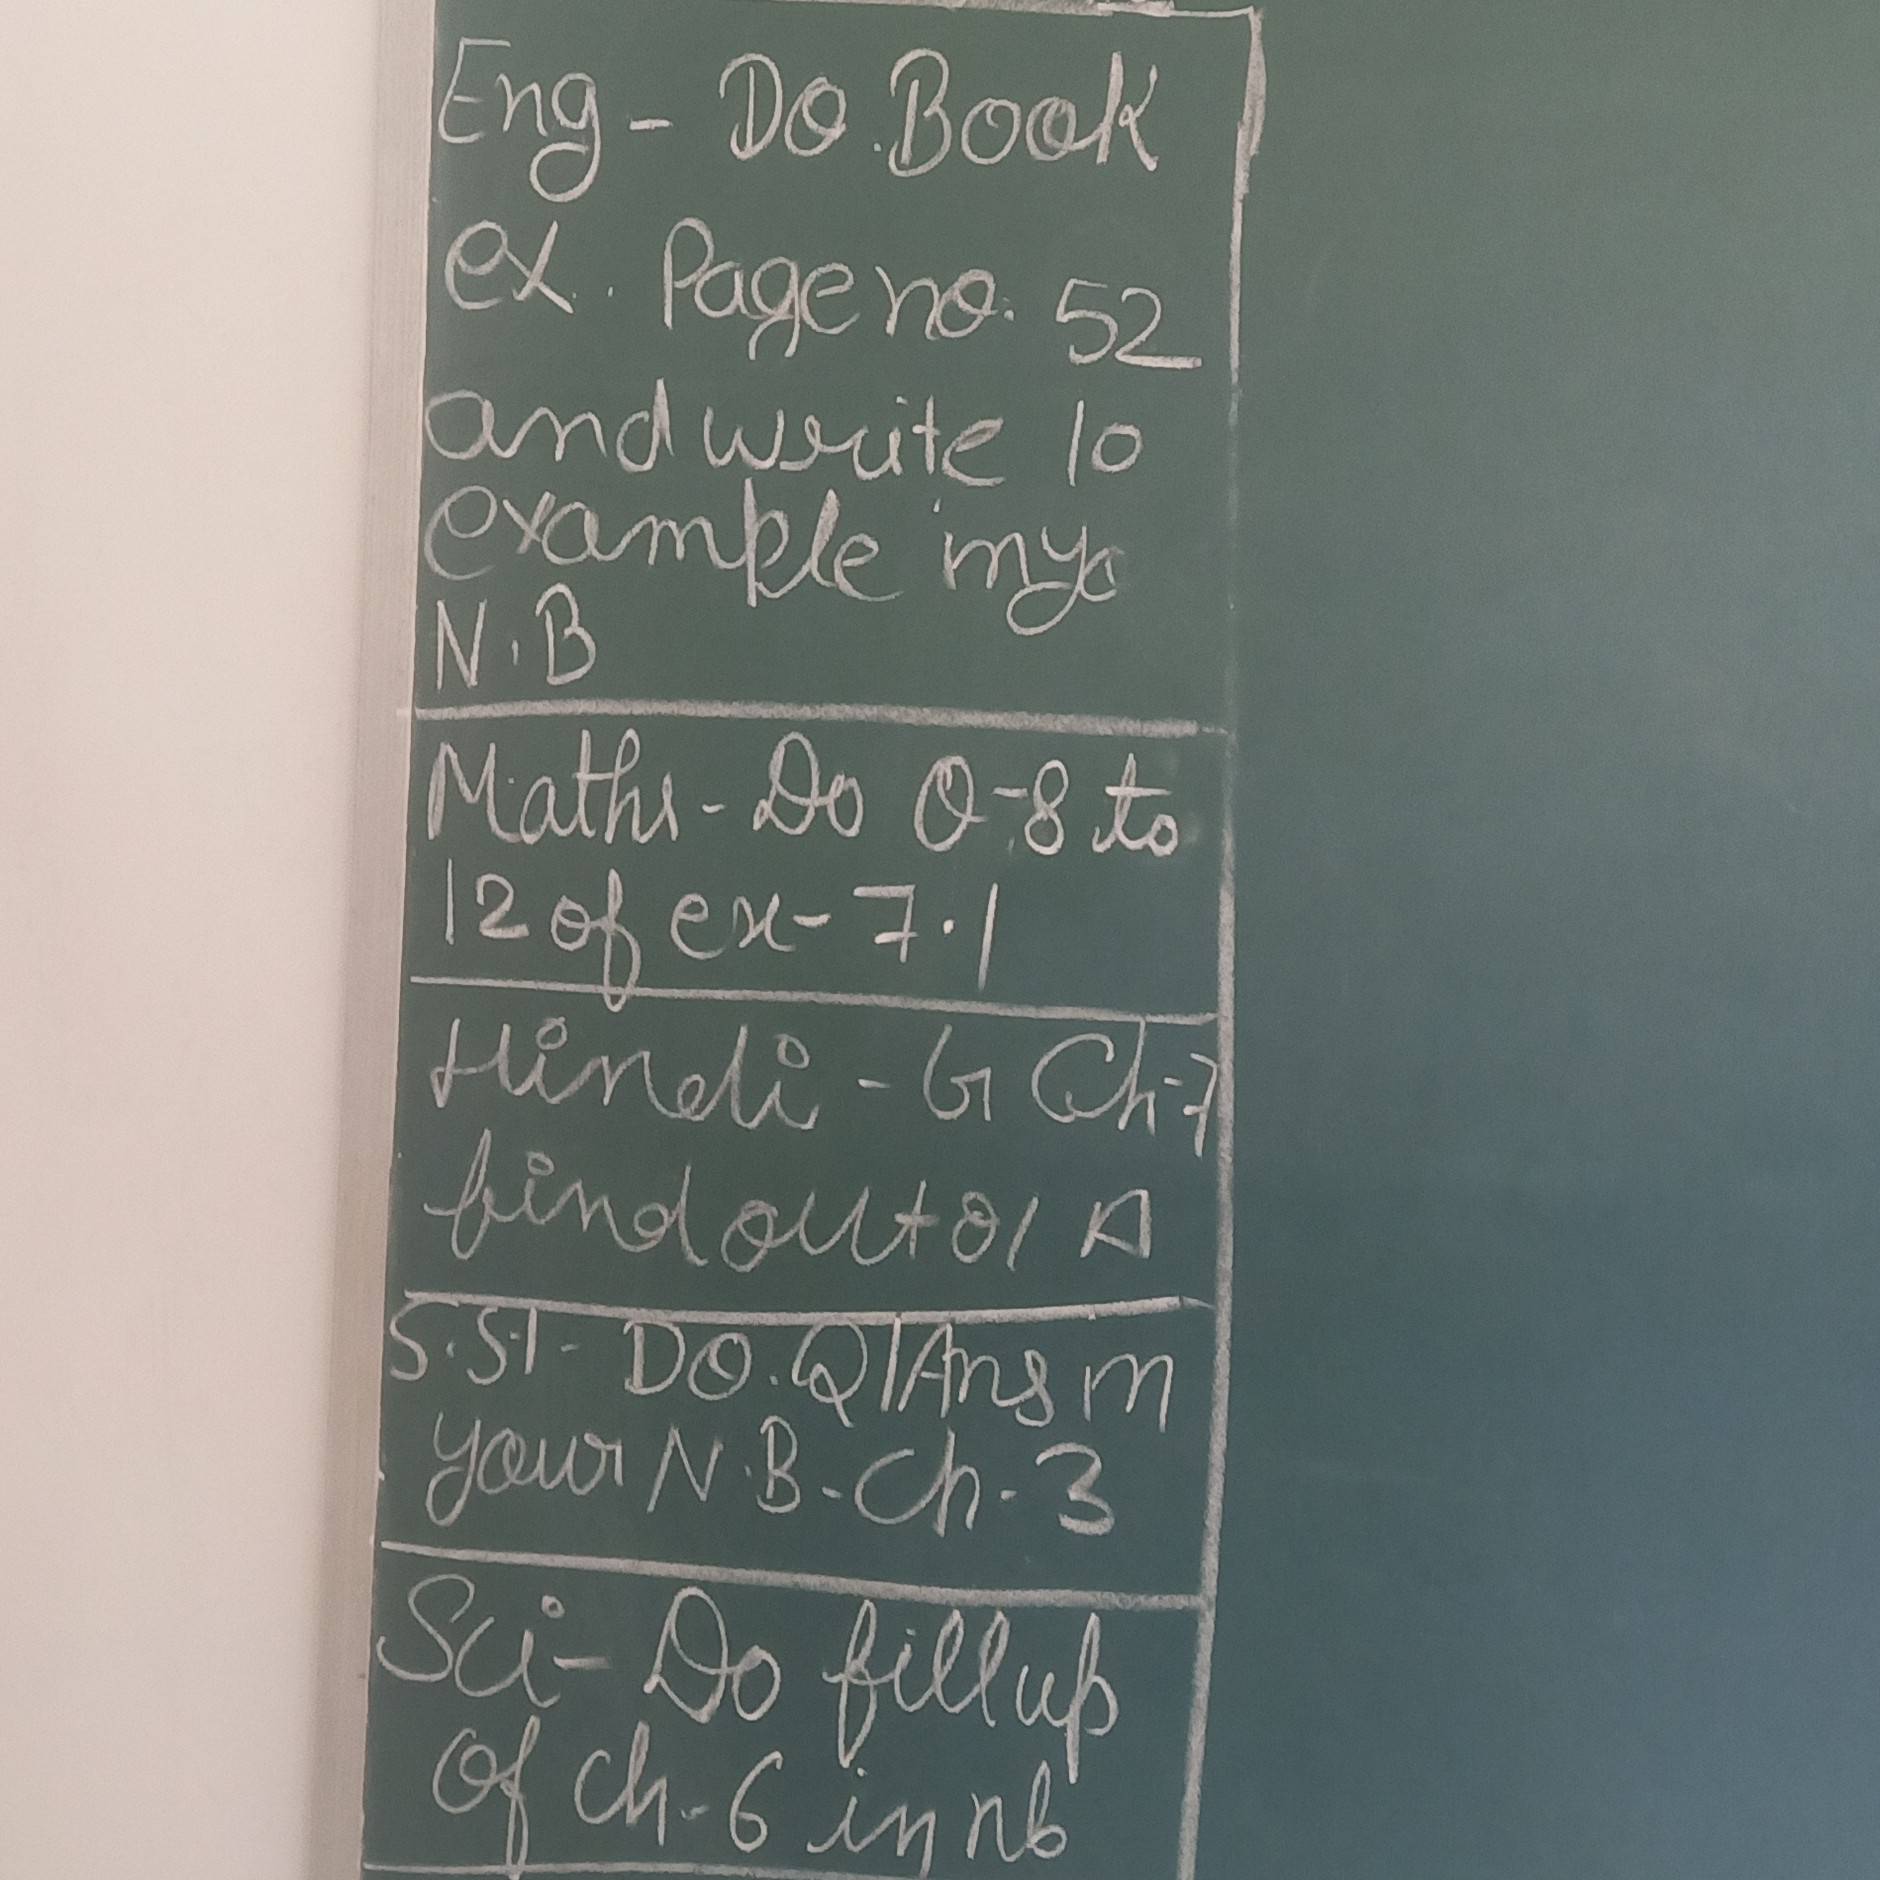 Eng - Do. Book
ex. Page no. 52
and write 10
example in
N.B
Maths - Do Q-8 to
12 of ex- 7.1
Hindi - G Ch-7
find out of A
S.St - DO. Q/Ans in
your N.B - Ch - 3
Sci - Do fillup
of ch - 6 in nb